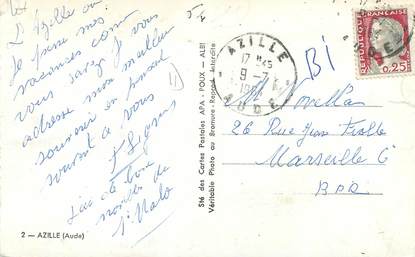 D'Azille ou
Je passe mes
vacances comme
vous savez je vous
adresse mon meilleur
souvenir en pensant
souvent à vous
J'ai de bonnes
nouvelles de
St Malo
2 — AZILLE (Aude)
Sté des Cartes Postales APA - POUX - ALBI
Véritable Photo au Bromure - Reprod. Interdite
AZILLE
17 H 45
9-7
AUDE
REPUBLIQUE FRANÇAISE
0,25
Bi
26 Rue Jean Fiolle
Marseille 6
BDR